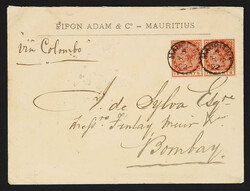 PIPON ADAM & Co - MAURITIUS
"via Colombo"
J. de Sylva Esqre
Messrs Finlay Muir & Co
Bombay